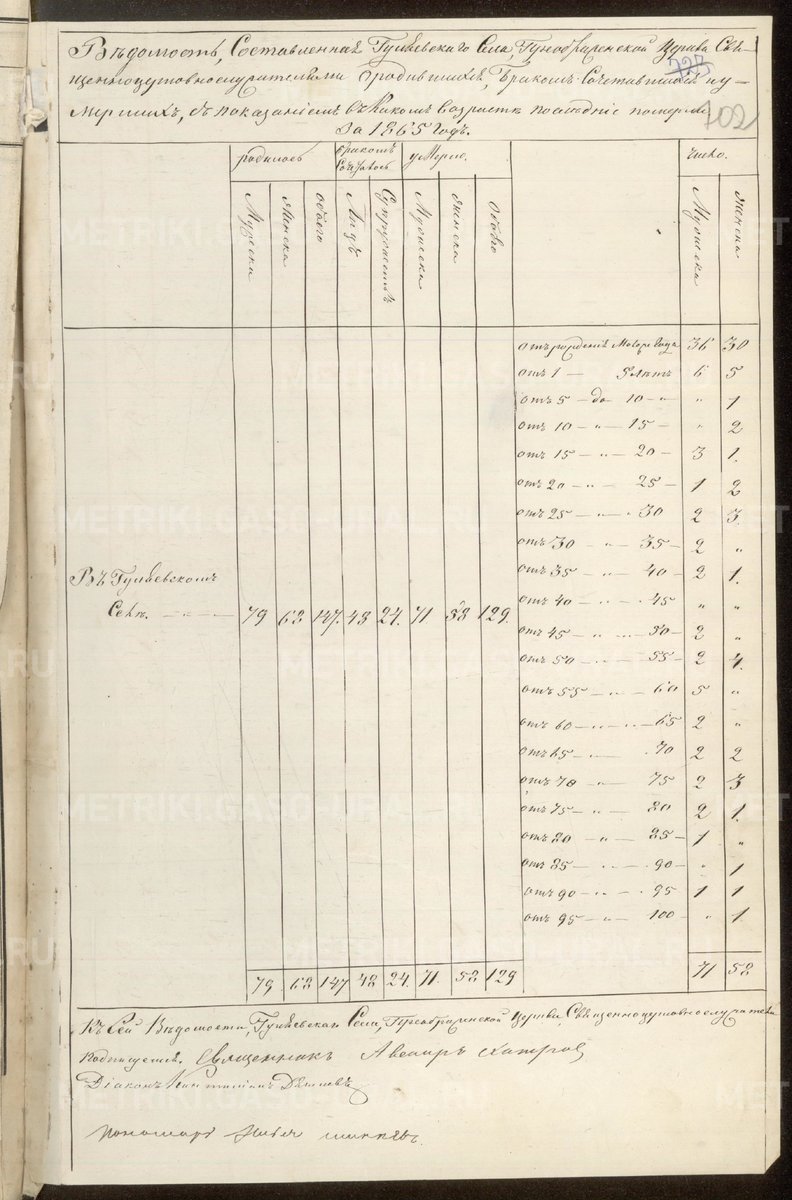 Вѣдомость, Составленная Гуляевскаго Села, Преображенской Церкви Свя-
щенноцерковнослужителями о родившихся, Бракомъ Сочетавшихся и у-
мершихъ, съ показаніемъ въ какомъ возрастѣ послѣдніе померли
За 1865 годъ.
702
родилось
бракомъ Сочеталось
умерло.
число.
Мужеска
Женска
Обоего
Лицъ
Супружествъ
Мужеска
Женска
Обоего
Мужеска
Женска
отъ рожденія до года 36 30
отъ 1 — 5 лѣтъ 6 5
отъ 5 — до 10 — „ „ 1
отъ 10 — „ — 15 — „ 2
отъ 15 — „ — 20 — 3 1.
отъ 20 — „ — 25 — 1 2
отъ 25 — „ — 30 2 3.
отъ 30 — „ — 35 — 2 „
отъ 35 — „ — 40 — 2 1.
отъ 40 — „ — 45 „ „
отъ 45 — „ — 50 — 2 „
отъ 50 — „ — 55 — 2 4.
отъ 55 — „ — 60 5 „
отъ 60 — „ — 65 2 „
отъ 65 — „ — 70 2 2
отъ 70 — „ — 75 2 3
отъ 75 — „ — 80 2 1.
отъ 80 — „ — 85 — 1 „
отъ 85 — „ — 90 — „ 1
отъ 90 — „ — 95 1 1
отъ 95 — „ — 100 — „ 1
Въ Гуляевскомъ
Селѣ. — — — 79 68 147. 48 24. 71 58 129.
79 68 147 48 24. 71. 58 129
71 58
Къ Сей Вѣдомости, Гуляевскаго Села, Преображенской Церкви Священноцерковнослужители
подписуемся. Священникъ Авениръ
Діаконъ
Пономарь
METRIKI.GASO-URAL.RU